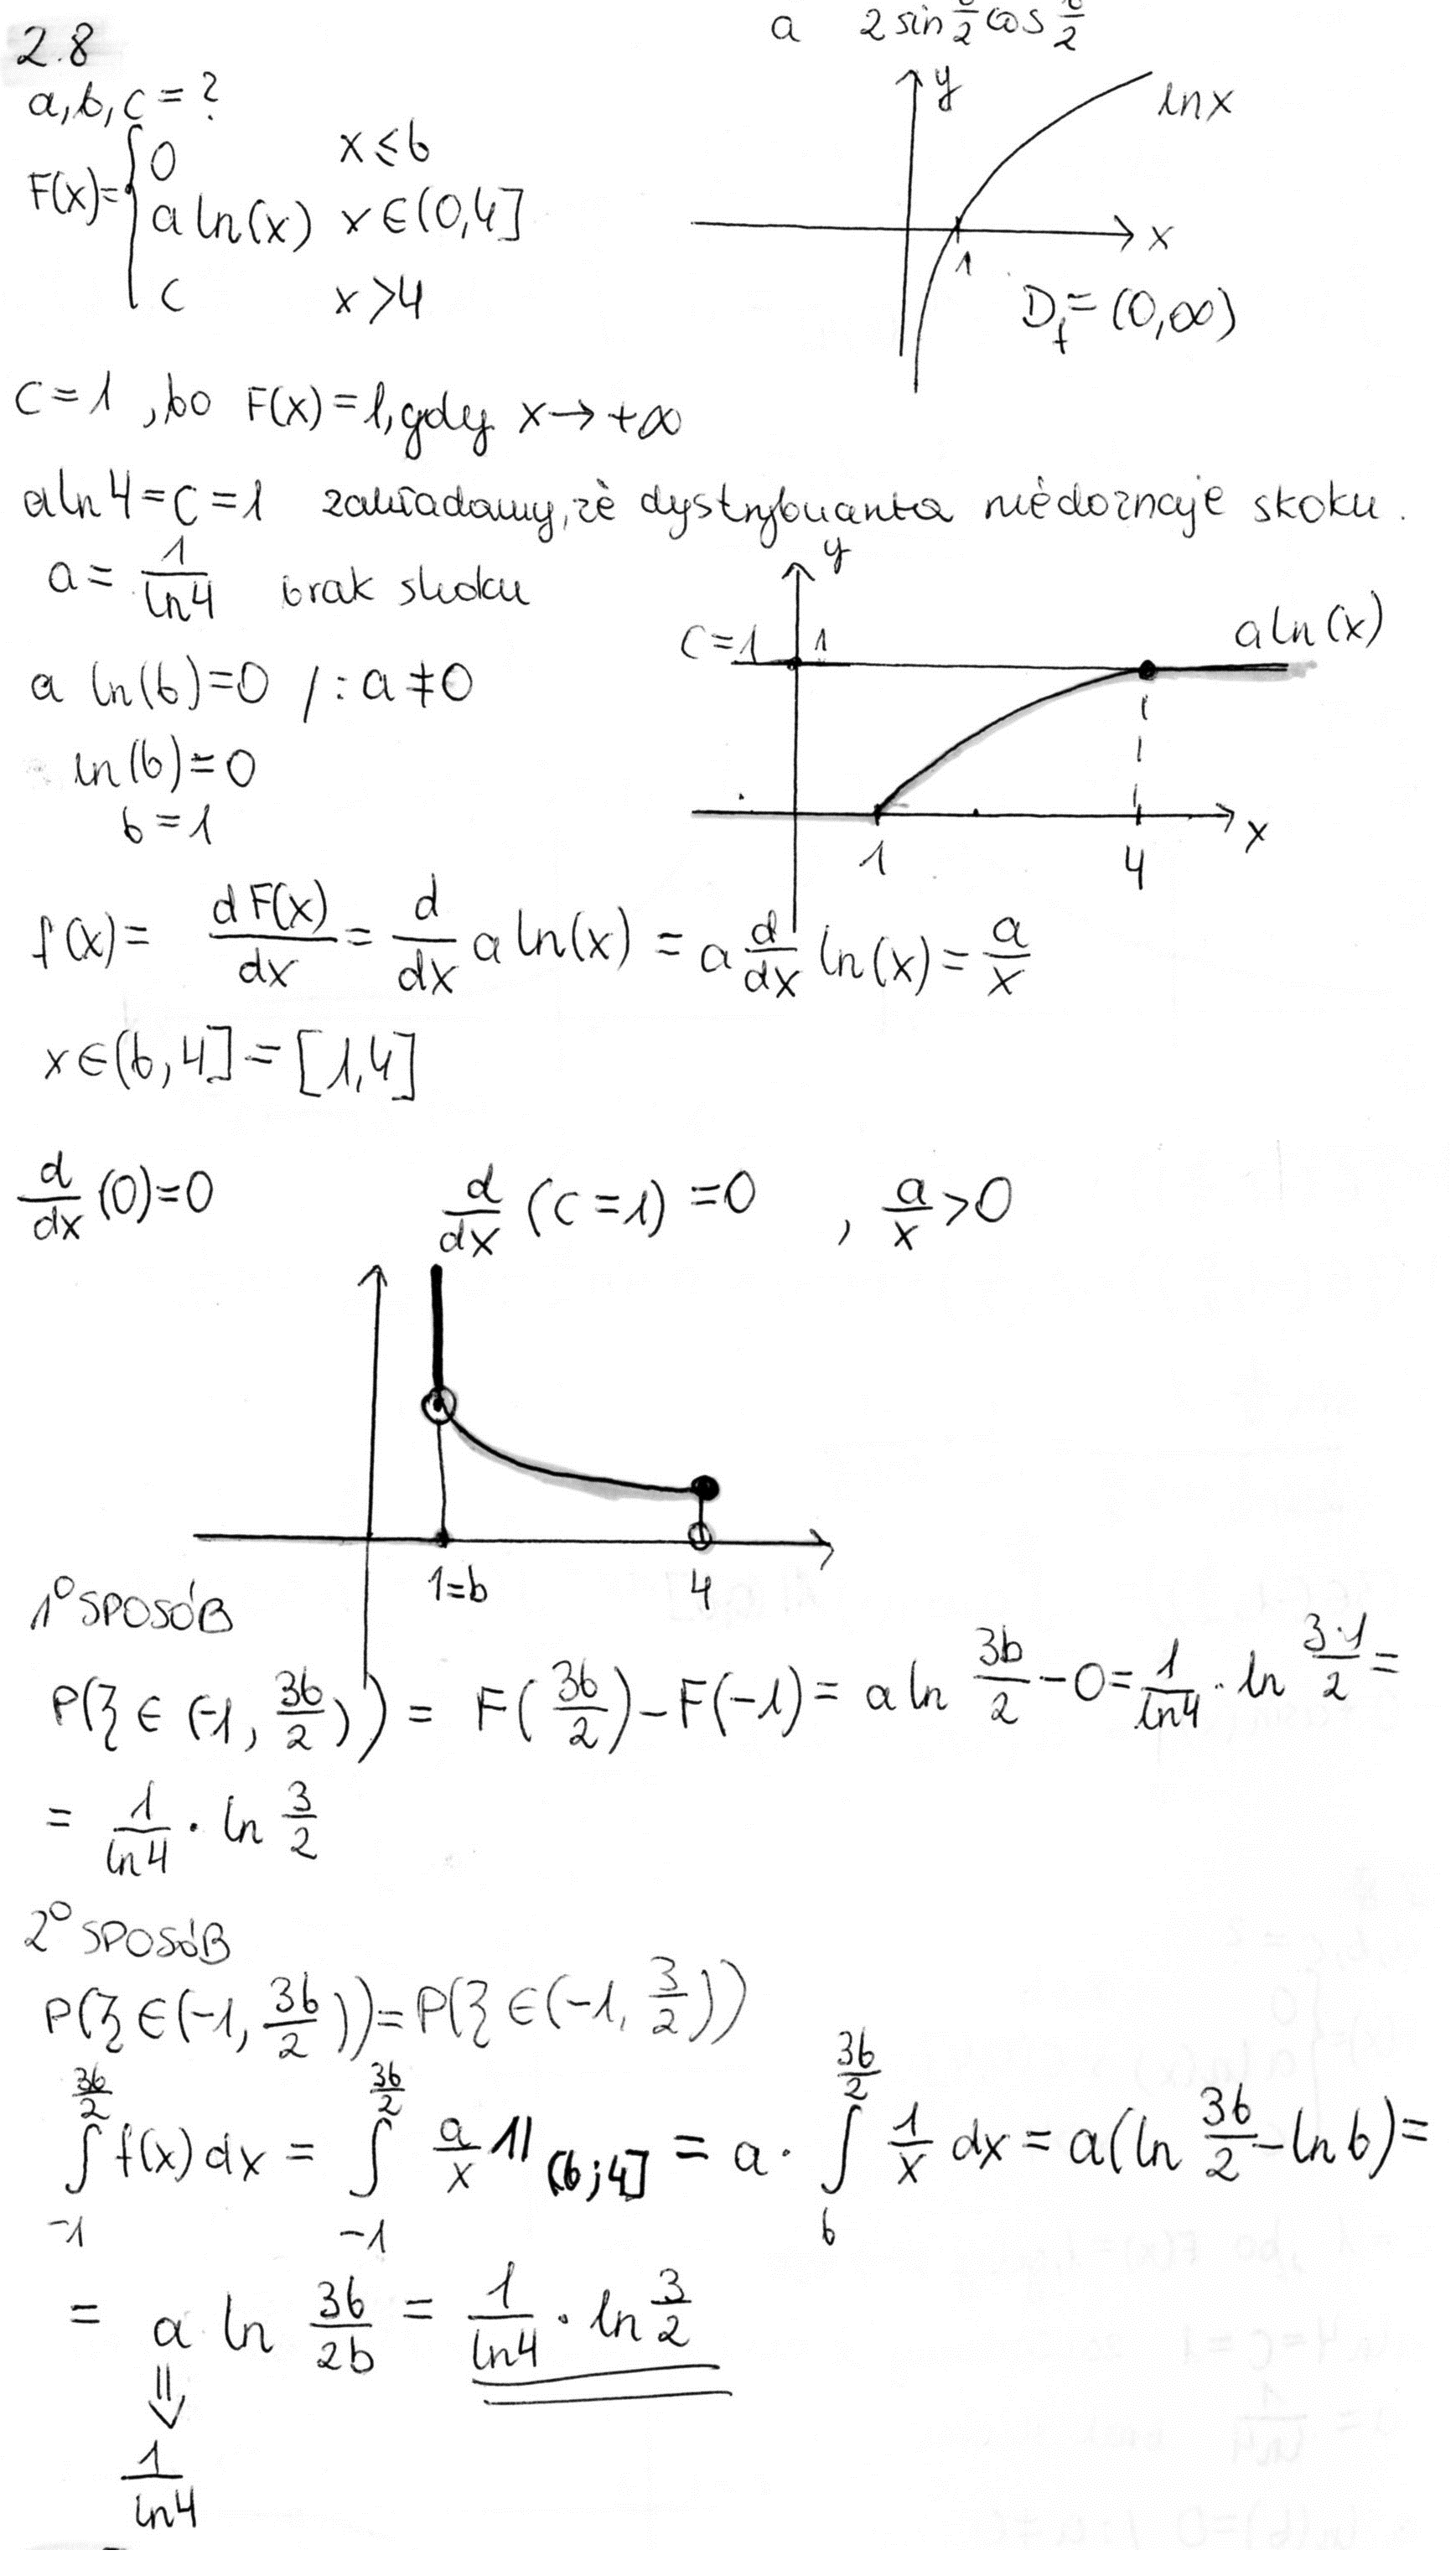 a 2 sin \frac{}{2} cos \frac{}{2}
2.8
a, b, c = ?
F(x) = { 0 x ≤ b
a ln(x) x ∈ (0,4]
c x > 4
y
ln x
x
1
D_f = (0,∞)
c = 1 , bo F(x) = 1, gdy x → +∞
a ln 4 = c = 1 zakładamy, że dystrybuanta nie doznaje skoku.
a = \frac{1}{ln 4} brak skoku
a ln(b) = 0 / : a ≠ 0
ln(b) = 0
b = 1
y
c = 1 1
a ln(x)
1 4 x
f(x) = \frac{dF(x)}{dx} = \frac{d}{dx} a ln(x) = a \frac{d}{dx} ln(x) = \frac{a}{x}
x ∈ (b, 4] = [1,4]
\frac{d}{dx} (0) = 0 \frac{d}{dx} (c = 1) = 0 , \frac{a}{x} > 0
1=b 4
1° SPOSÓB
P(ξ ∈ (-1, \frac{3b}{2})) = F(\frac{3b}{2}) - F(-1) = a ln \frac{3b}{2} - 0 = \frac{1}{ln4} · ln \frac{3·1}{2} =
= \frac{1}{ln4} · ln \frac{3}{2}
2° SPOSÓB
P(ξ ∈ (-1, \frac{3b}{2})) = P(ξ ∈ (-1, \frac{3}{2}))
∫_{-1}^{\frac{3b}{2}} f(x) dx = ∫_{-1}^{\frac{3b}{2}} \frac{a}{x} 1I_{(b;4]} = a · ∫_{b}^{\frac{3b}{2}} \frac{1}{x} dx = a(ln \frac{3b}{2} - ln b) =
= a ln \frac{3b}{2b} = \frac{1}{ln4} · ln \frac{3}{2}
⇓
\frac{1}{ln4}